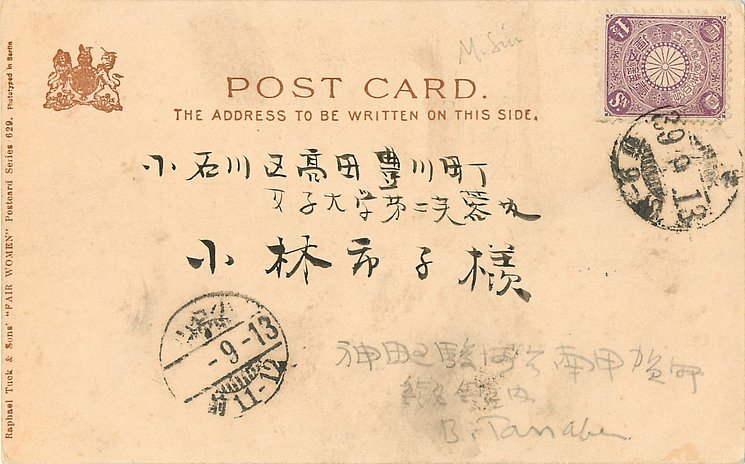 M. Sin
POST CARD.
THE ADDRESS TO BE WRITTEN ON THIS SIDE.
小石川区高田豊川町
女子大学第二芙蓉丸
小林市子様
39 9 13
小石川
-9-13
11-12
神田区駿河台南甲賀町
B. Tanabe
Raphael Tuck & Sons' "FAIR WOMEN" Postcard Series 629. Phototyped in Berlin